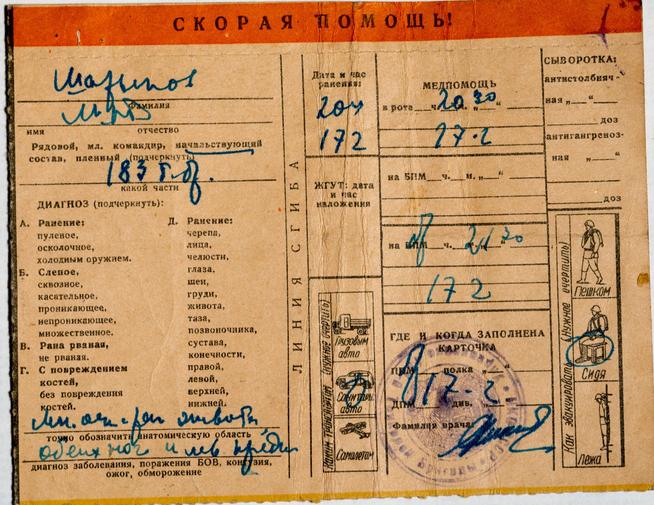 СКОРАЯ ПОМОЩЬ!
фамилия
имя отчество
Рядовой, мл. командир, начальствующий
состав, пленный (подчеркнуть)
183 т.бр.
какой части
ДИАГНОЗ (подчеркнуть):
А. Ранение:
пулевое,
осколочное,
холодным оружием.
Б. Слепое,
сквозное,
касательное,
проникающее,
непроникающее,
множественное.
В. Рана рваная,
не рваная.
Г. С повреждением
костей,
без повреждения
костей.
Д. Ранение:
черепа,
лица,
челюсти,
глаза,
шеи,
груди,
живота,
таза,
позвоночника,
сустава,
конечности,
правой,
левой,
верхней,
нижней.
живота
точно обозначить анатомическую область
обеих ног и лев.
диагноз заболевания, поражения БОВ, контузия,
ожог, обморожение
ЛИНИЯ СГИБА
Дата и час
ранения:
17 2
ЖГУТ: дата
и час
наложения
Каким транспортом (нужное очертить)
Грузовым
авто
Санитарн.
авто
Самолетом
МЕДПОМОЩЬ
в роте ч. 20 30
17-2
на БПМ ч. м. „ “
на ППМ ч. 21 30
17 2
ГДЕ И КОГДА ЗАПОЛНЕНА
КАРТОЧКА
ППМ полка
17-2
ДПМ див.
Фамилия врача:
СЫВОРОТКА:
антистолбняч-
ная „ “
доз
антигангреноз-
ная „ “
доз
Как эвакуировать (Нужное очертить)
Пешком
Сидя
Лёжа